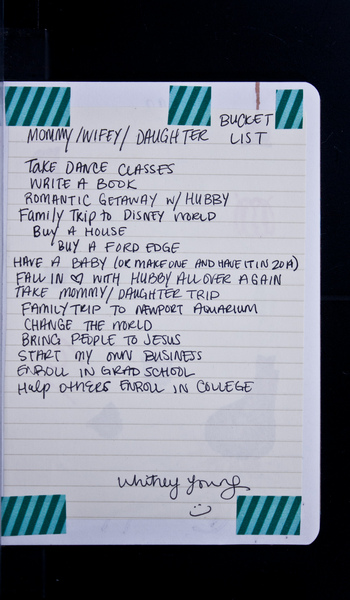 BUCKET
MOMMY/WIFEY/DAUGHTER LIST
TAKE DANCE CLASSES
WRITE A BOOK
ROMANTIC GETAWAY W/ HUBBY
Family Trip to DISNEY WORLD
Buy A HOUSE
BUY A FORD EDGE
HAVE A BABY (OR MAKE ONE AND HAVE IT IN 2014)
FALL IN ♡ WITH HUBBY ALL OVER AGAIN
TAKE MOMMY/DAUGHTER TRIP
FAMILY TRIP TO NEWPORT AQUARIUM
CHANGE THE WORLD
BRING PEOPLE TO JESUS
START MY OWN BUSINESS
ENROLL IN GRAD SCHOOL
Help OTHERS ENROLL IN COLLEGE
Whitney Young